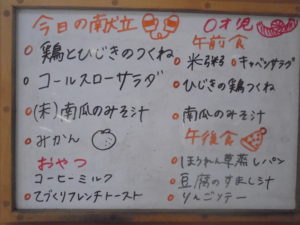 今日の献立
鶏とひじきのつくね
コールスローサラダ
(未)南瓜のみそ汁
みかん
おやつ
コーヒーミルク
てづくりフレンチトースト
0才児
午前食
米粥 キャベツサラダ
ひじきの鶏つくね
南瓜のみそ汁
午後食
ほうれん草蒸しパン
豆腐のすまし汁
りんごソテー